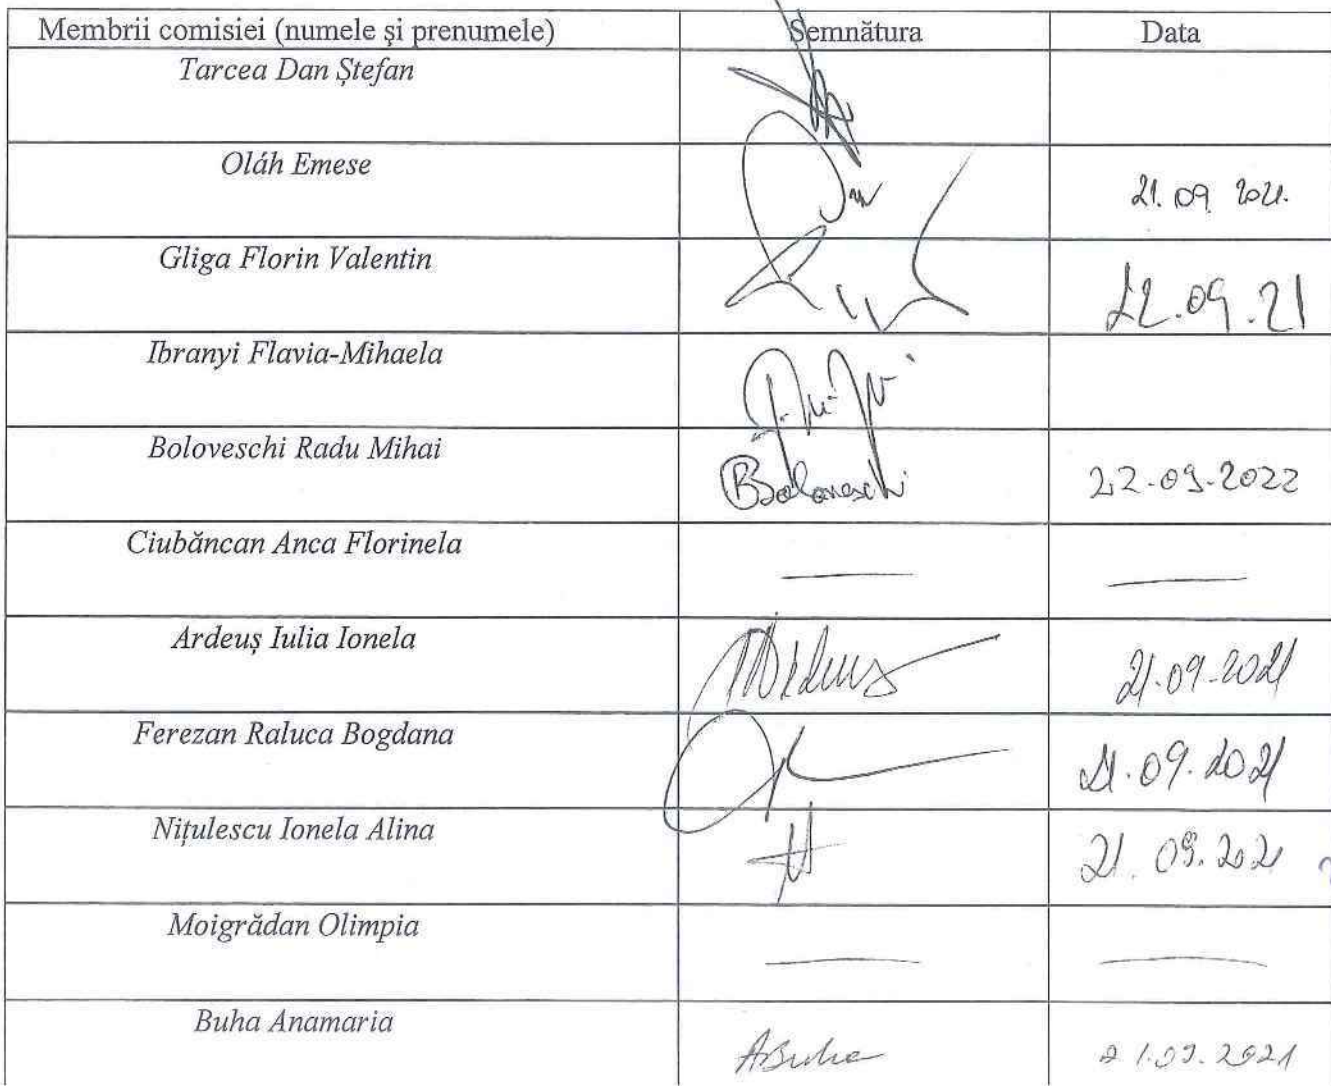 Membrii comisiei (numele și prenumele) Semnătura Data
Tarcea Dan Ștefan
Oláh Emese 21.09 2021.
Gliga Florin Valentin 22.09.21
Ibranyi Flavia-Mihaela
Boloveschi Radu Mihai Boloveschi 22.09.2022
Ciubăncan Anca Florinela — —
Ardeuș Iulia Ionela 21.09.2021
Ferezan Raluca Bogdana 21.09.2021
Nițulescu Ionela Alina 21.09.2021
Moigrădan Olimpia — —
Buha Anamaria ABuha 21.09.2021